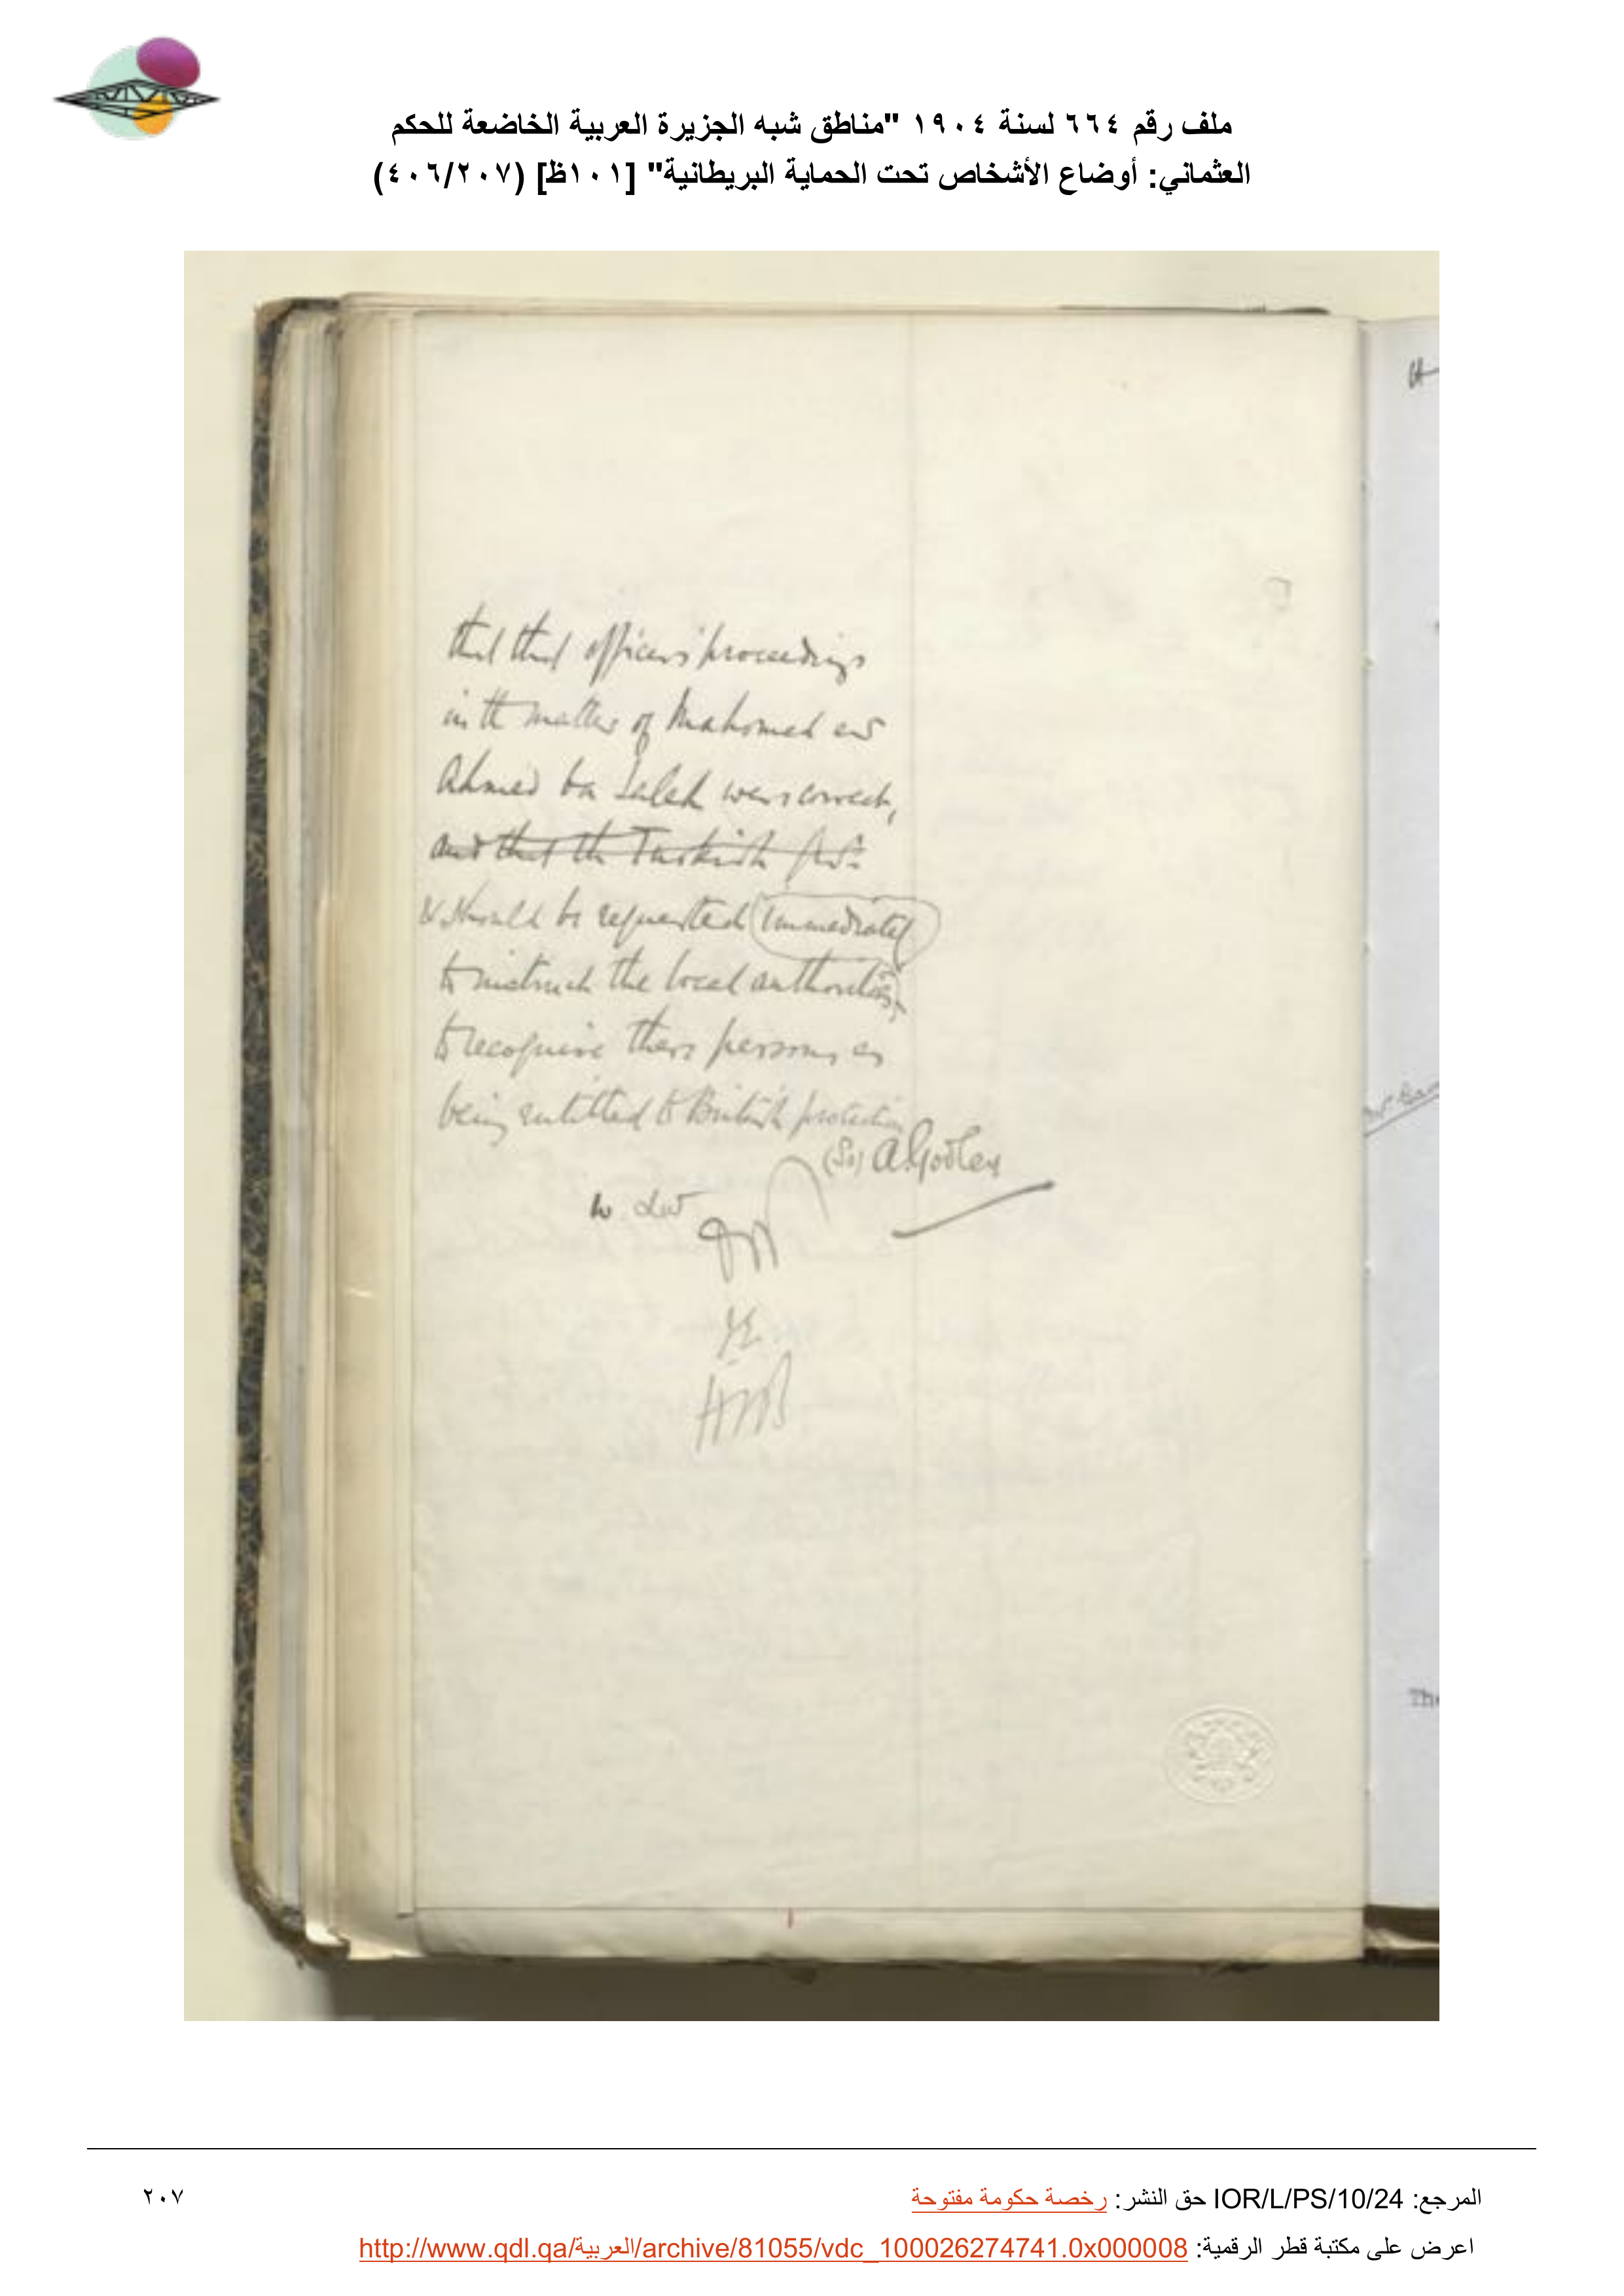 ملف رقم ٦٦٤ لسنة ١٩٠٤ "مناطق شبه الجزيرة العربية الخاضعة للحكم
العثماني: أوضاع الأشخاص تحت الحماية البريطانية" [١٠١ظ] (٤٠٦/٢٠٧)
that that officer's proceedings
in the matter of Mahomed and
Ahmed ba Saleh were correct,
and that the Turkish
should be requested immediately
to instruct the local authorities,
to recognise these persons as
being entitled to British protection
(Sd) A. Godley
The
المرجع: IOR/L/PS/10/24 حق النشر: رخصة حكومة مفتوحة
٢٠٧
اعرض على مكتبة قطر الرقمية: http://www.qdl.qa/العربية/archive/81055/vdc_100026274741.0x000008